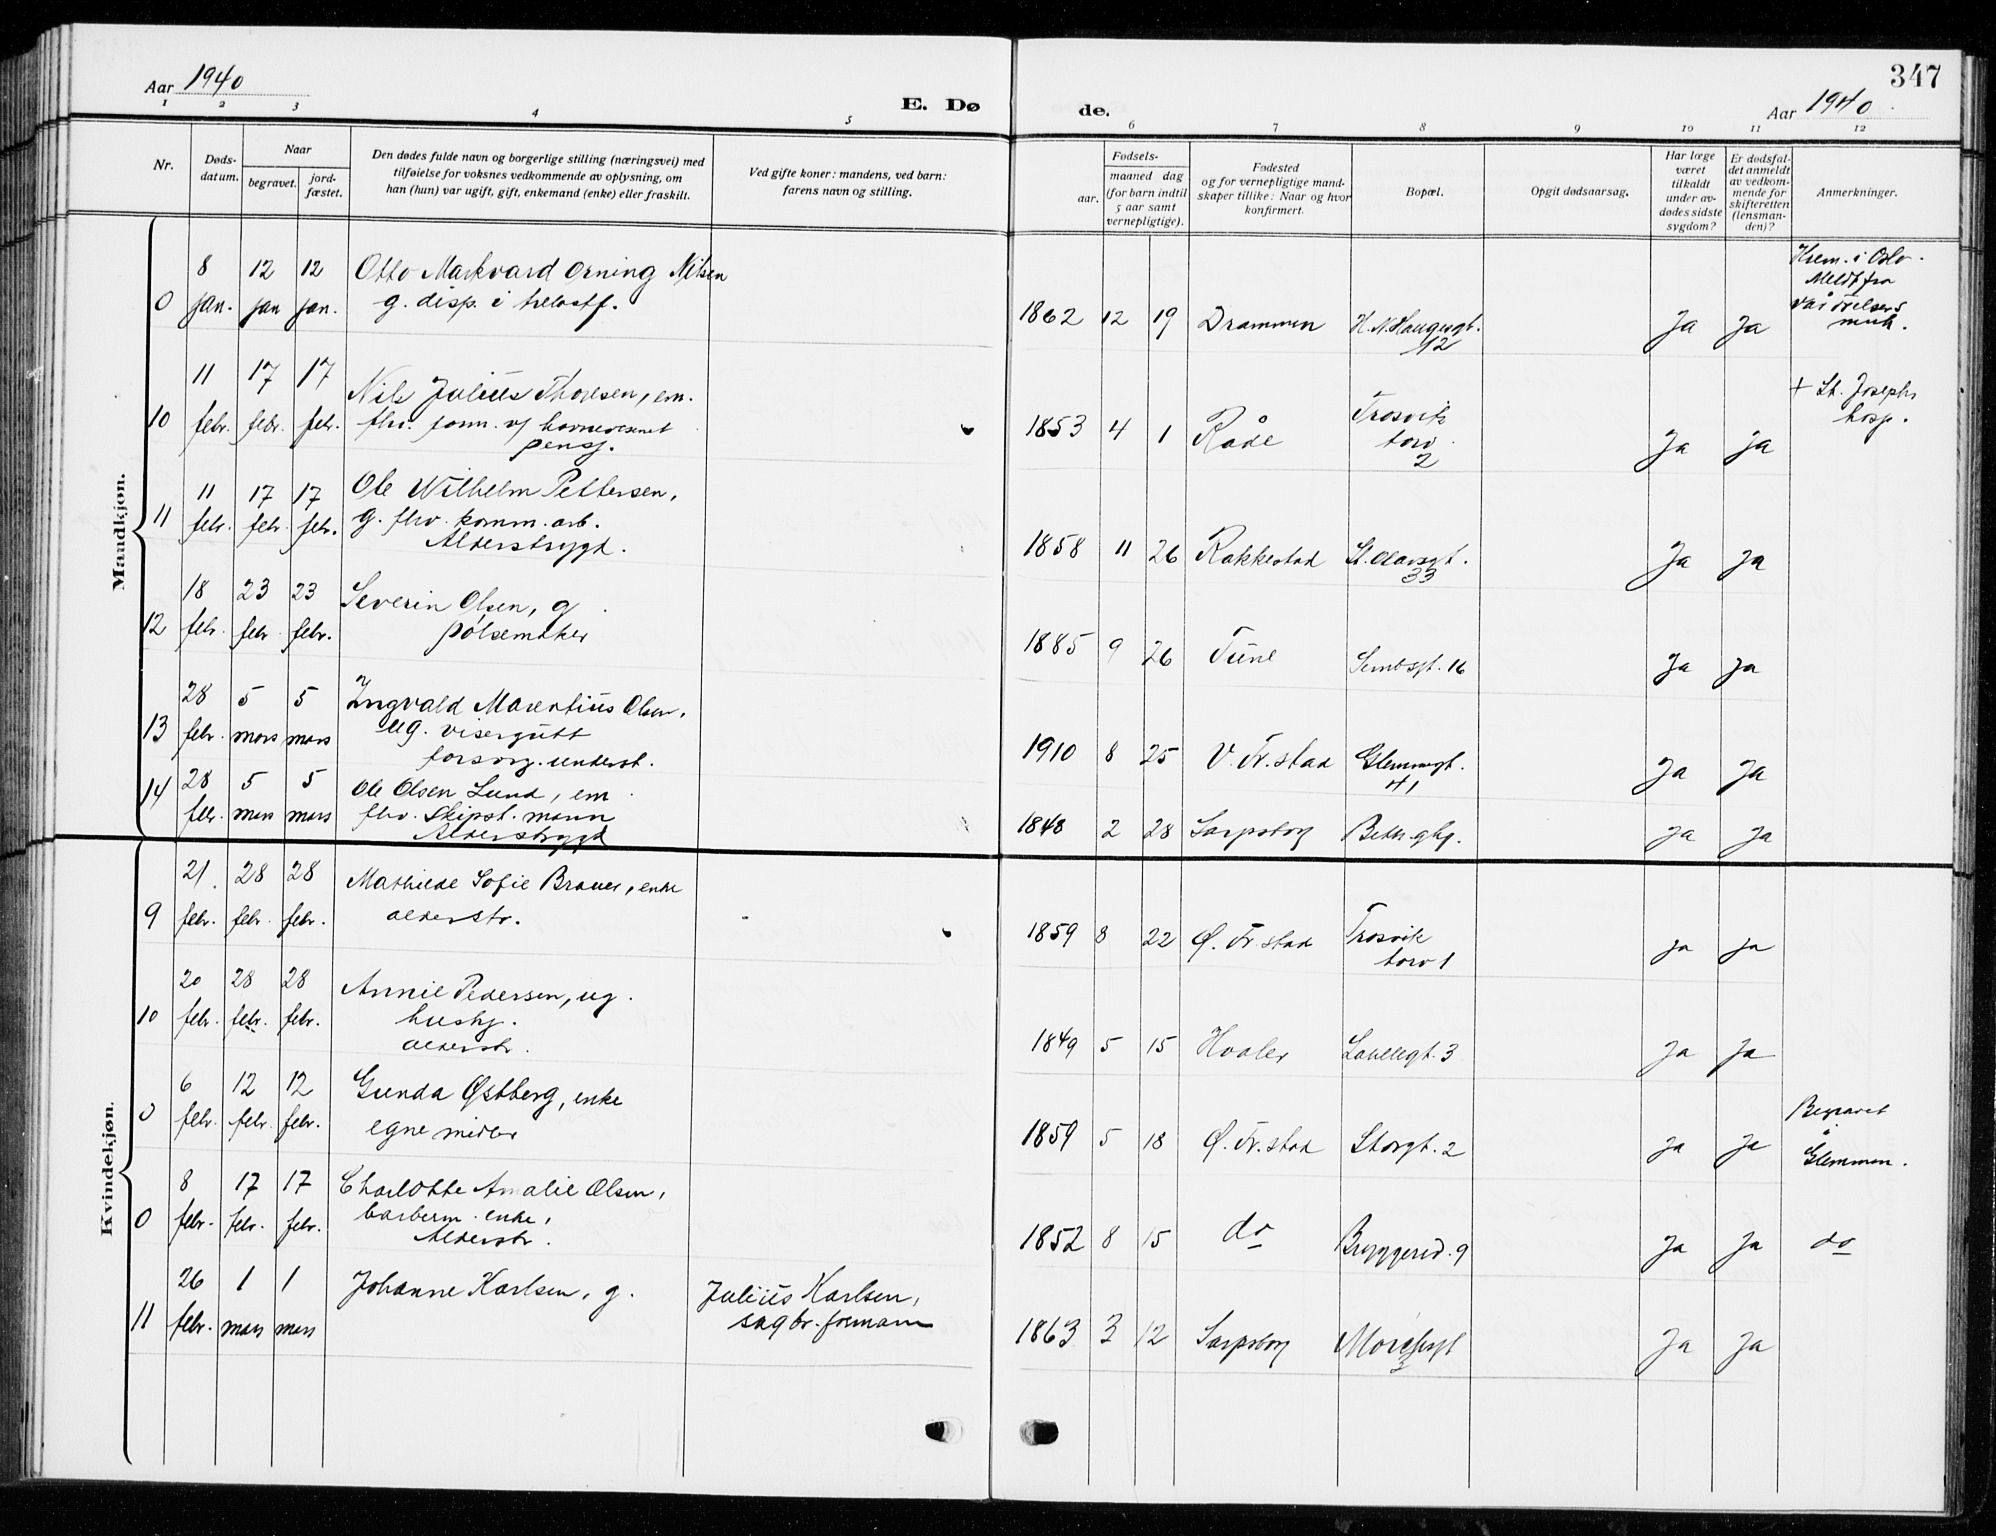 347
Aar 1940
E. Dø
de.
Aar 1940
1 2 3 4 5 6 7 8 9 10 11 12
Nr.
Døds-
datum.
Naar
begravet.
jord-
fæstet.
Den dødes fulde navn og borgerlige stilling (næringsvei) med
tilføielse for voksnes vedkommende av oplysning, om
han (hun) var ugift, gift, enkemand (enke) eller fraskilt.
Ved gifte koner: mandens, ved barn:
farens navn og stilling.
Fødsels-
aar.
maaned dag
(for barn indtil
5 aar samt
vernepligtige).
Fødested
og for vernepligtige mand-
skaper tillike: Naar og hvor
konfirmert.
Bopæl.
Opgit dødsaarsag.
Har læge
været
tilkaldt
under av-
dødes sidste
sygdom?
Er dødsfal-
det anmeldt
av vedkom-
mende for
skifteretten
(lensman-
den)?
Anmerkninger.
Mandkjøn.
0 8 jan. 12 jan 12 jan.
Otto Markvard Orning Nilsen
g. disp. i
1862 12 19 Drammen H. N. Haugesgt.
12
Ja Ja
Krem. i Oslo.
Meldt fra
10 11 febr. 17 febr. 17 febr.
Nils Julius Thoresen, em.
fhv. form. v/ havnevesenet
pensj.
1853 4 1 Råde Trosvik
torv
2
Ja ja
+ St. Josephs
hosp.
11 11 febr. 17 febr. 17 febr.
Ole Wilhelm Pettersen,
g. fhv. komm. arb.
Alderstrygd.
1858 11 26 Rakkestad St. Olavsgt.
33
Ja Ja
12 18 febr. 23 febr 23 febr.
Severin Olsen, g
pølsemaker
1885 9 26 Tune Sembsgt. 16
Ja Ja
13 28 febr. 5 mars 5 mars
Ingvald Marentius Olsen,
ug. visergutt
forsorg. underst.
1910 8 25 V. Fr. stad Glemmegt.
41
Ja Ja
14 28 febr. 5 mars 5 mars
Ole Olsen Lund, em
fhv. Skipst. mann
Alderstrygd
1848 2 28 Sarpsborg
Ja Ja
Kvindekjøn.
9 21. febr. 28 febr. 28 febr.
Mathilde Sofie Brauer, enke
alderstr.
1859 8 22 Ø. Fr. stad Trosvik
torv 1
Ja Ja
10 20 febr. 28 febr. 28 febr.
Annie Pedersen, ug.
hushj.
alderstr.
1849 5 15 Hvaler 3
Ja Ja
0 6 febr. 12 febr. 12 febr.
Gunda Østberg, enke
egne midler
1859 5 18 Ø. Fr. stad Storgt. 2
Ja Ja
Begravet
å
Glemmen.
0 8 febr. 17 febr. 17 febr.
Charlotte Amalie Olsen,
barberm. enke,
Alderstr.
1852 8 15 do Bryggerid. 9
Ja Ja do
11 26 febr. 1 mars 1 mars
Johanne Karlsen, g.
Julius Karlsen,
sagbr. formann
1863 3 12 Sarpsborg
3
Ja Ja